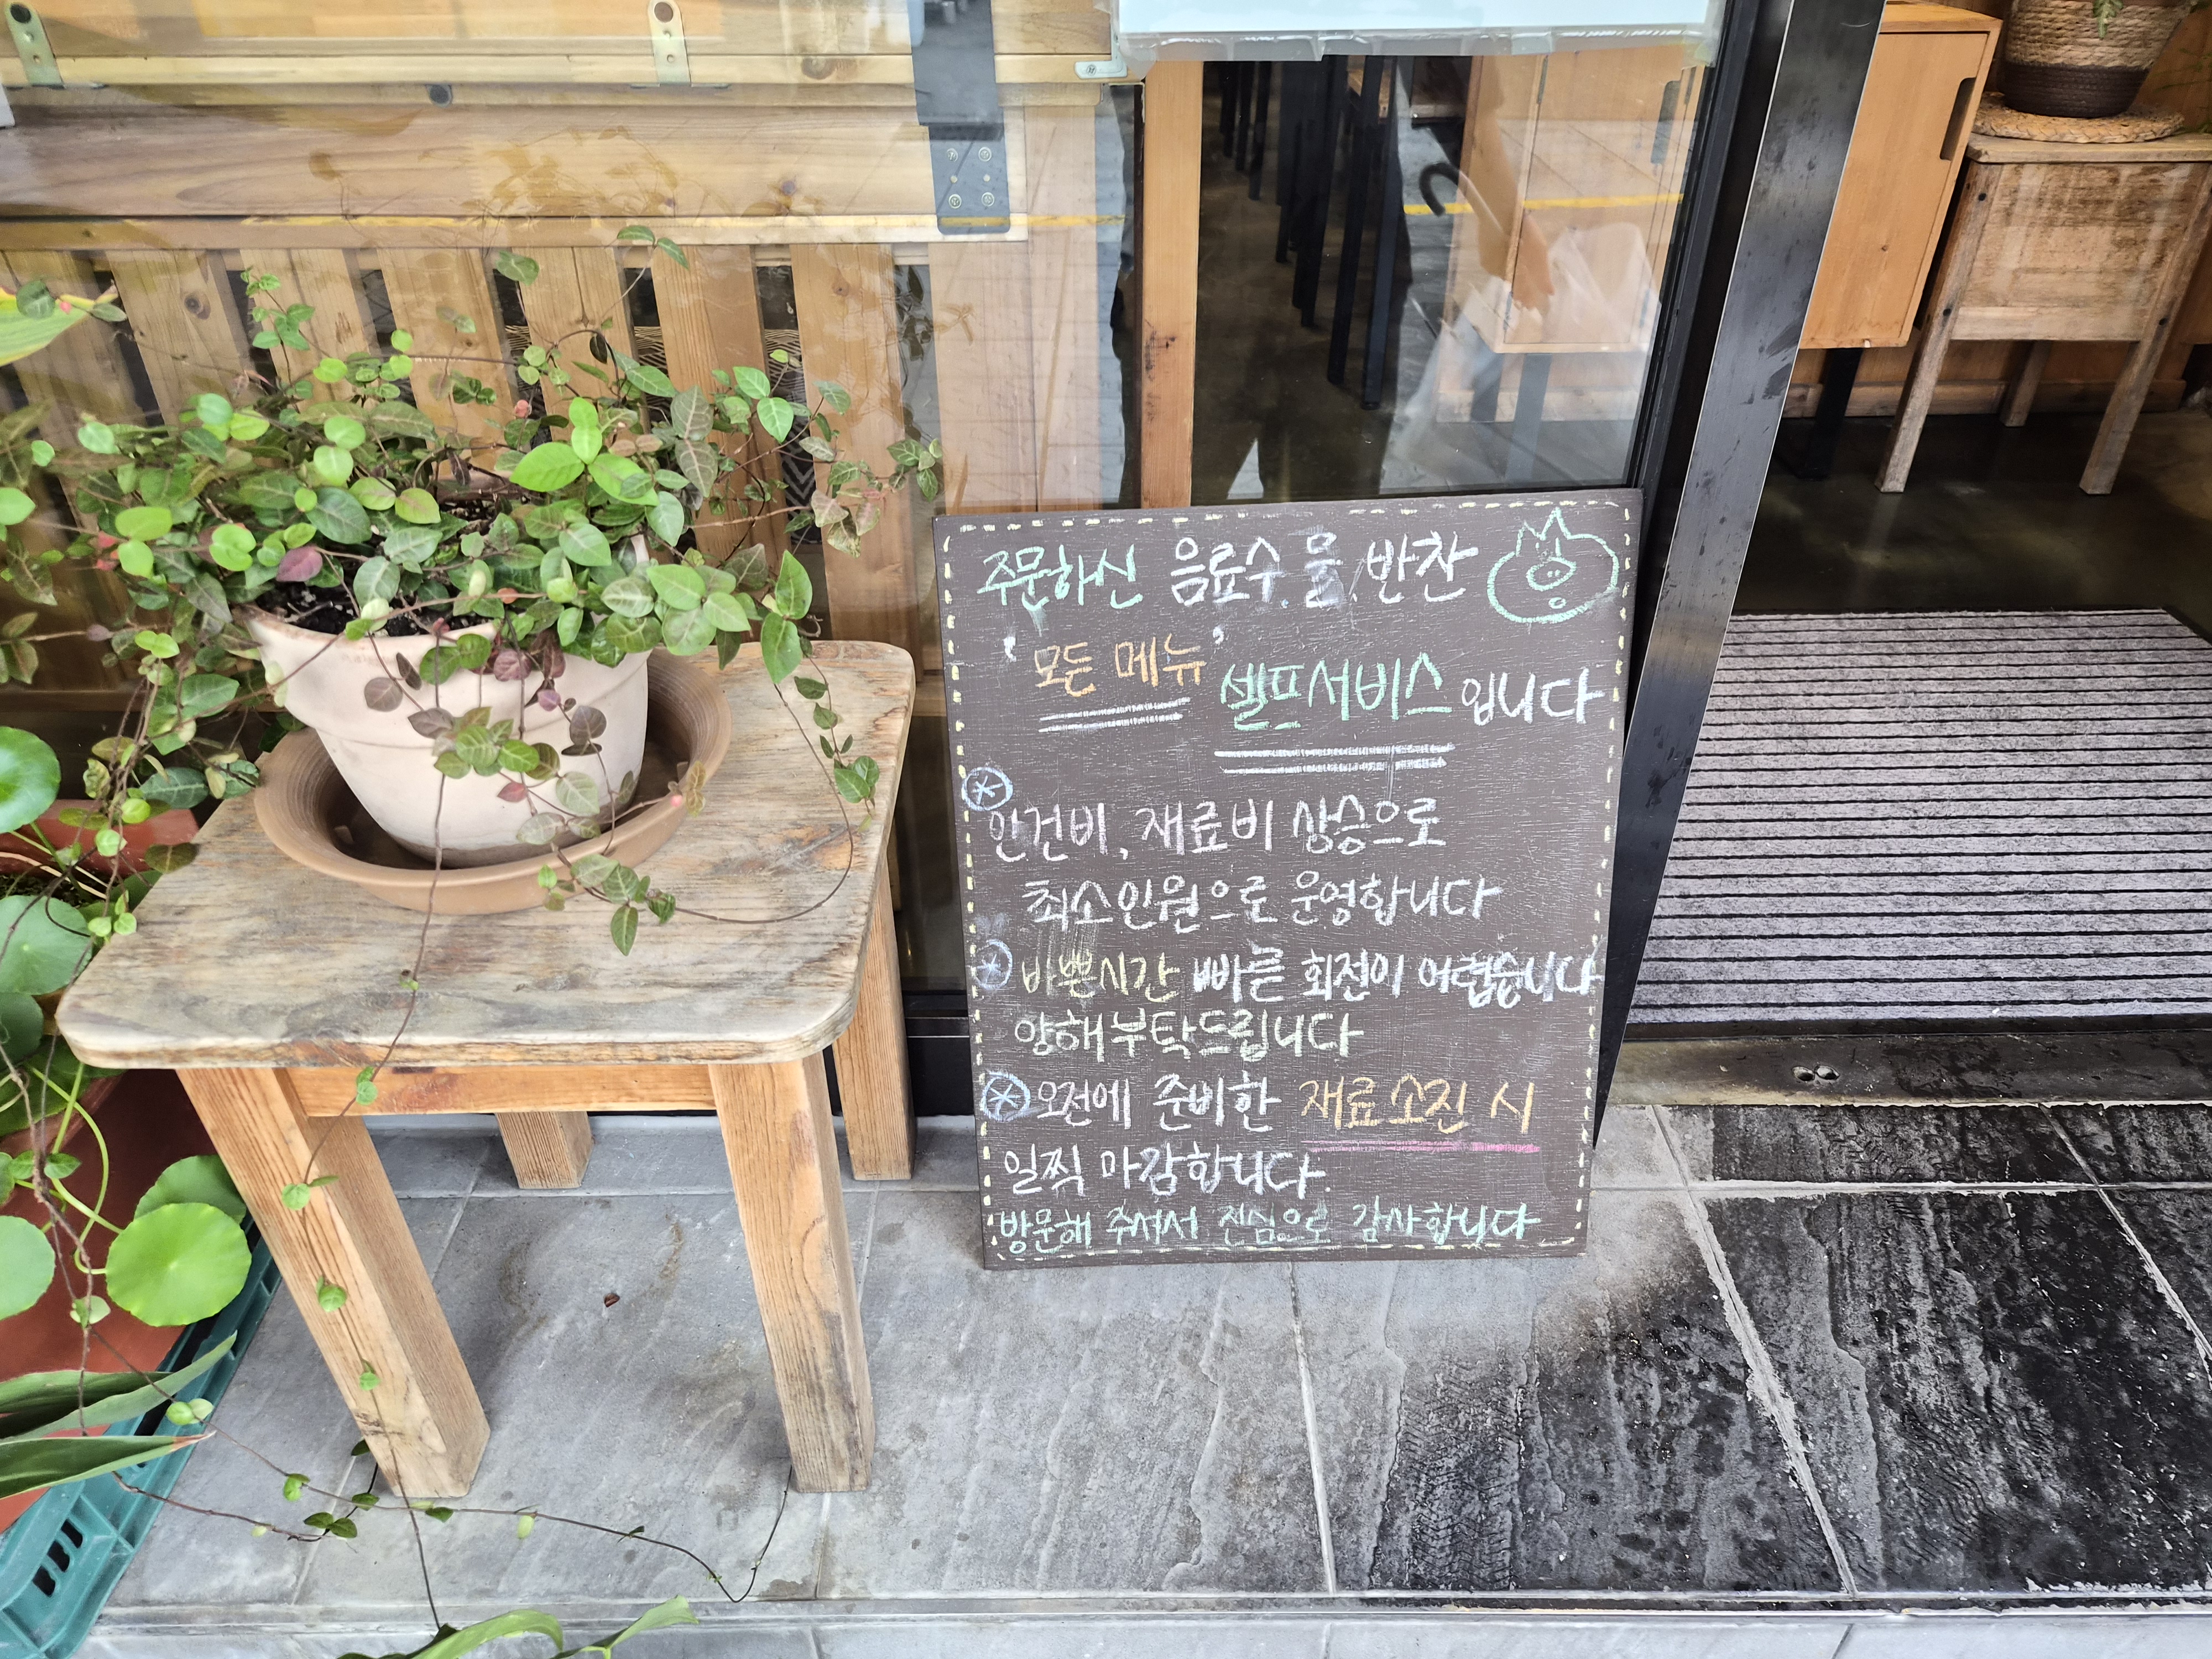 주문하신 음료수.물.반찬
'모든 메뉴' 셀프서비스 입니다
인건비, 재료비 상승으로
최소인원으로 운영합니다
바쁜시간 빠른 회전이 어렵습니다
양해부탁드립니다
오전에 준비한 재료소진 시
일찍 마감합니다.
방문해 주셔서 진심으로 감사합니다